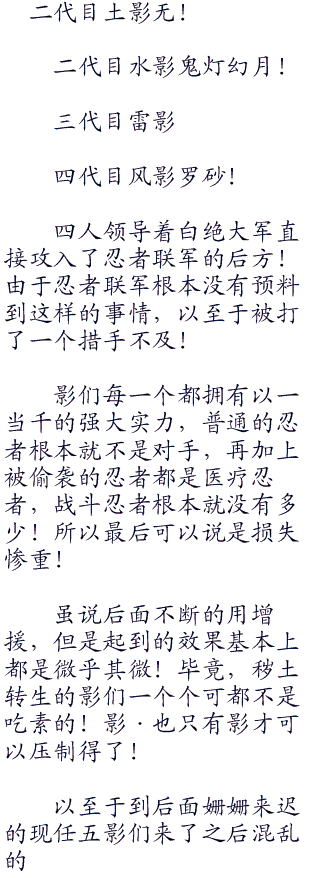 二代目土影无！
二代目水影鬼灯幻月！
三代目雷影
四代目风影罗砂！
四人领导着白绝大军直
接攻入了忍者联军的后方！
由于忍者联军根本没有预料
到这样的事情，以至于被打
了一个措手不及！
影们每一个都拥有以一
当千的强大实力，普通的忍
者根本就不是对手，再加上
被偷袭的忍者都是医疗忍
者，战斗忍者根本就没有多
少！所以最后可以说是损失
惨重！
虽说后面不断的用增
援，但是起到的效果基本上
都是微乎其微！毕竟，秽土
转生的影们一个个可都不是
吃素的！影·也只有影才可
以压制得了！
以至于到后面姗姗来迟
的现任五影们来了之后混乱
的